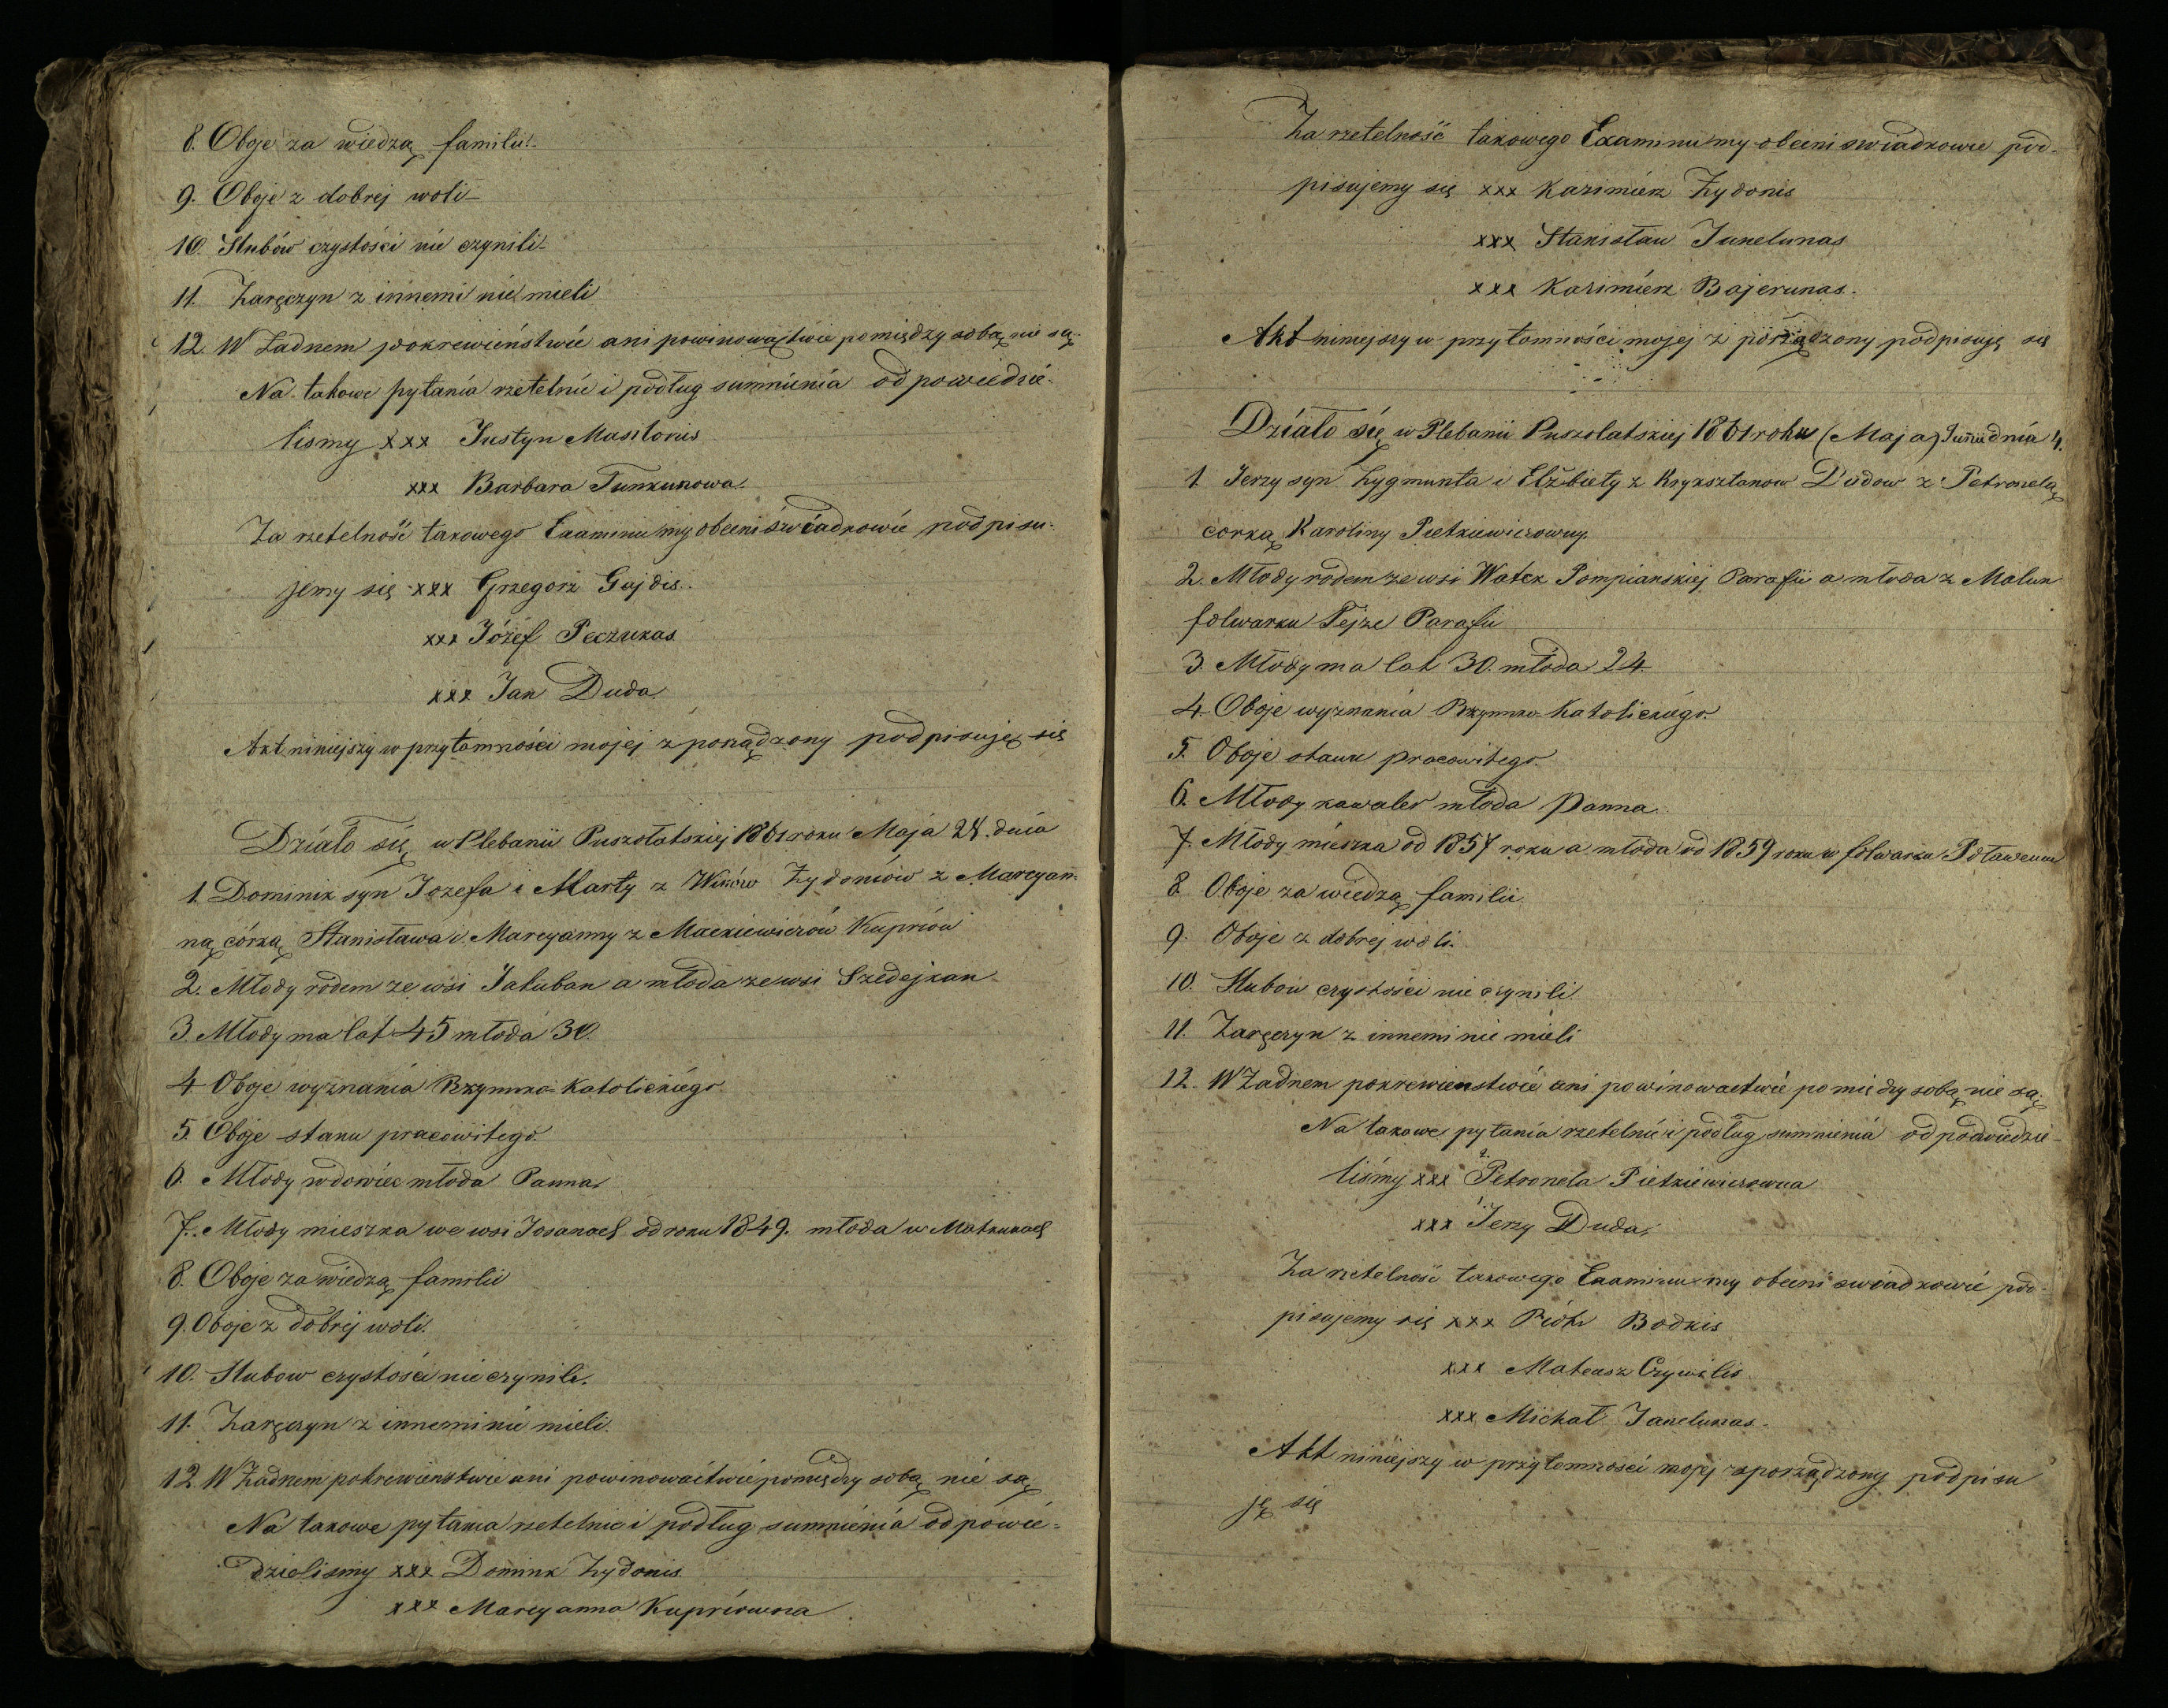 8. Oboje za wiedzą familii.
9. Oboje z dobrej woli
10. Slubów czystości nie czynili.
11. Zaręczyn z innemi nie mieli
12. W Żadnem pokrewieństwie ani powinowactwie pomiędzy sobą nie są.
Na takowe pytania rzetelnie i podług sumnienia odpowiedzie-
lismy xxx Justyn Masilonis
xxx Barbara Tunkunowa.
Za rzetelność takowego Examinu my obecni świadkowie podpisu-
jemy się xxx Grzegorz Gajdis.
xxx Józef Peczukas
xxx Jan Duda
Akt niniejszy w przytomności mojej zporządzony podpisuję się
Działo się w Plebanii Puszołatskiej 1861 roku Maja 28. dnia
1. Dominik syn Jozefa i Marty z Wików Żydoniów z Marcyan-
ną córką Stanisława i Marcyanny z Mackiewiczów Kupriów
2. Młody rodem ze wsi Jakuban a młoda ze wsi Szedejkan
3. Młody ma lat 45 młoda 30.
4. Oboje wyznania Rzymsko-Katolickiego
5. Oboje stanu pracowitego.
6. Młody wdowiec młoda Panna
7. Młody mieszka we wsi Josanach od roku 1849. młoda w Matkunach
8. Oboje za wiedzą familii
9. Oboje z dobrej woli.
10. Slubow czystości nie czynili.
11. Zaręczyn z innemi nie mieli.
12. W Żadnem pokrewienstwie ani powinowactwie pomiędzy sobą nie są
Na takowe pytania rzetelnie i podług sumnienia odpowie-
dzielismy xxx Dominik Żydonis
xxx Marcyanna Kupriówna
Za rzetelność takowego Examinu my obecni swiadkowie pod-
pisujemy się xxx Kazimierz Żydonis
xxx Stanisław Junelunas
xxx Kazimierz Bajerunas.
Akt niniejszy w przytomności mojej zporządzony podpisuję się
Działo się w Plebanii Puszołatskiej 1861 roku (Maja) Junii dnia 4.
1. Jerzy syn Zygmunta i Elżbiety z Kryksztanow Dudow z Petronelą
corką Karoliny Pietkiewiczowny.
2. Młody rodem ze wsi Watek Pompianskiej Parafii a młoda z Malun
folwarku Tejze Parafii
3. Młody ma lat 30. młoda 24.
4. Oboje wyznania Rzymsko-Katolickiego.
5. Oboje stanu pracowitego.
6. Młody kawaler młoda Panna.
7. Młody mieszka od 1857 roku a młoda od 1859 roku w folwarku
8. Oboje za wiedzą familii.
9. Oboje z dobrej woli.
10. Slubow czystości nie czynili.
11. Zaręczyn z innemi nie mieli
12. W Żadnem pokrewienstwie ani powinowactwie pomiędzy sobą nie są.
Na takowe pytania rzetelnie i podług sumnienia odpowiedzie-
liśmy xxx 2. Petronela Pietkiewiczowna
xxx 1. Jerzy Duda.
Za rzetelność takowego Examinu my obecni swiadkowie pod-
pisujemy się xxx Piotr Bodkis
xxx Mateusz Czywilis
xxx Michał Janelunas.
Akt niniejszy w przytomności mojej sporządzony podpisu
ję się